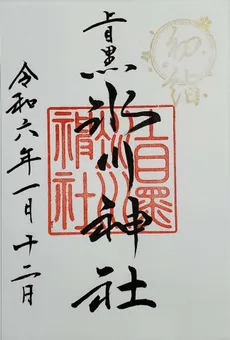 初詣
上目黒氷川神社
上目黒
氷川
神社
令和六年一月十二日